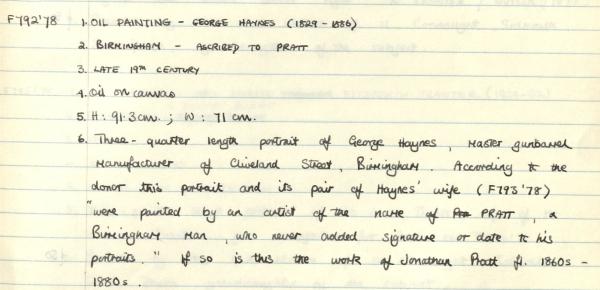 F792'78 1. OIL PAINTING - GEORGE HAYNES (1829 - 1886)
2. BIRMINGHAM - ASCRIBED TO PRATT
3. LATE 19TH CENTURY
4. Oil on canvas
5. H: 91.3cm. ; W: 71 cm.
6. Three-quarter length portrait of George Haynes, Master gunbarrel
manufacturer of Cliveland Street, Birmingham. According to the
donor this portrait and its pair of Haynes' wife (F793'78)
"were painted by an artist of the name of PRATT, a
Birmingham man, who never added signature or date to his
portraits." If so is this the work of Jonathan Pratt fl. 1860s -
1880s.